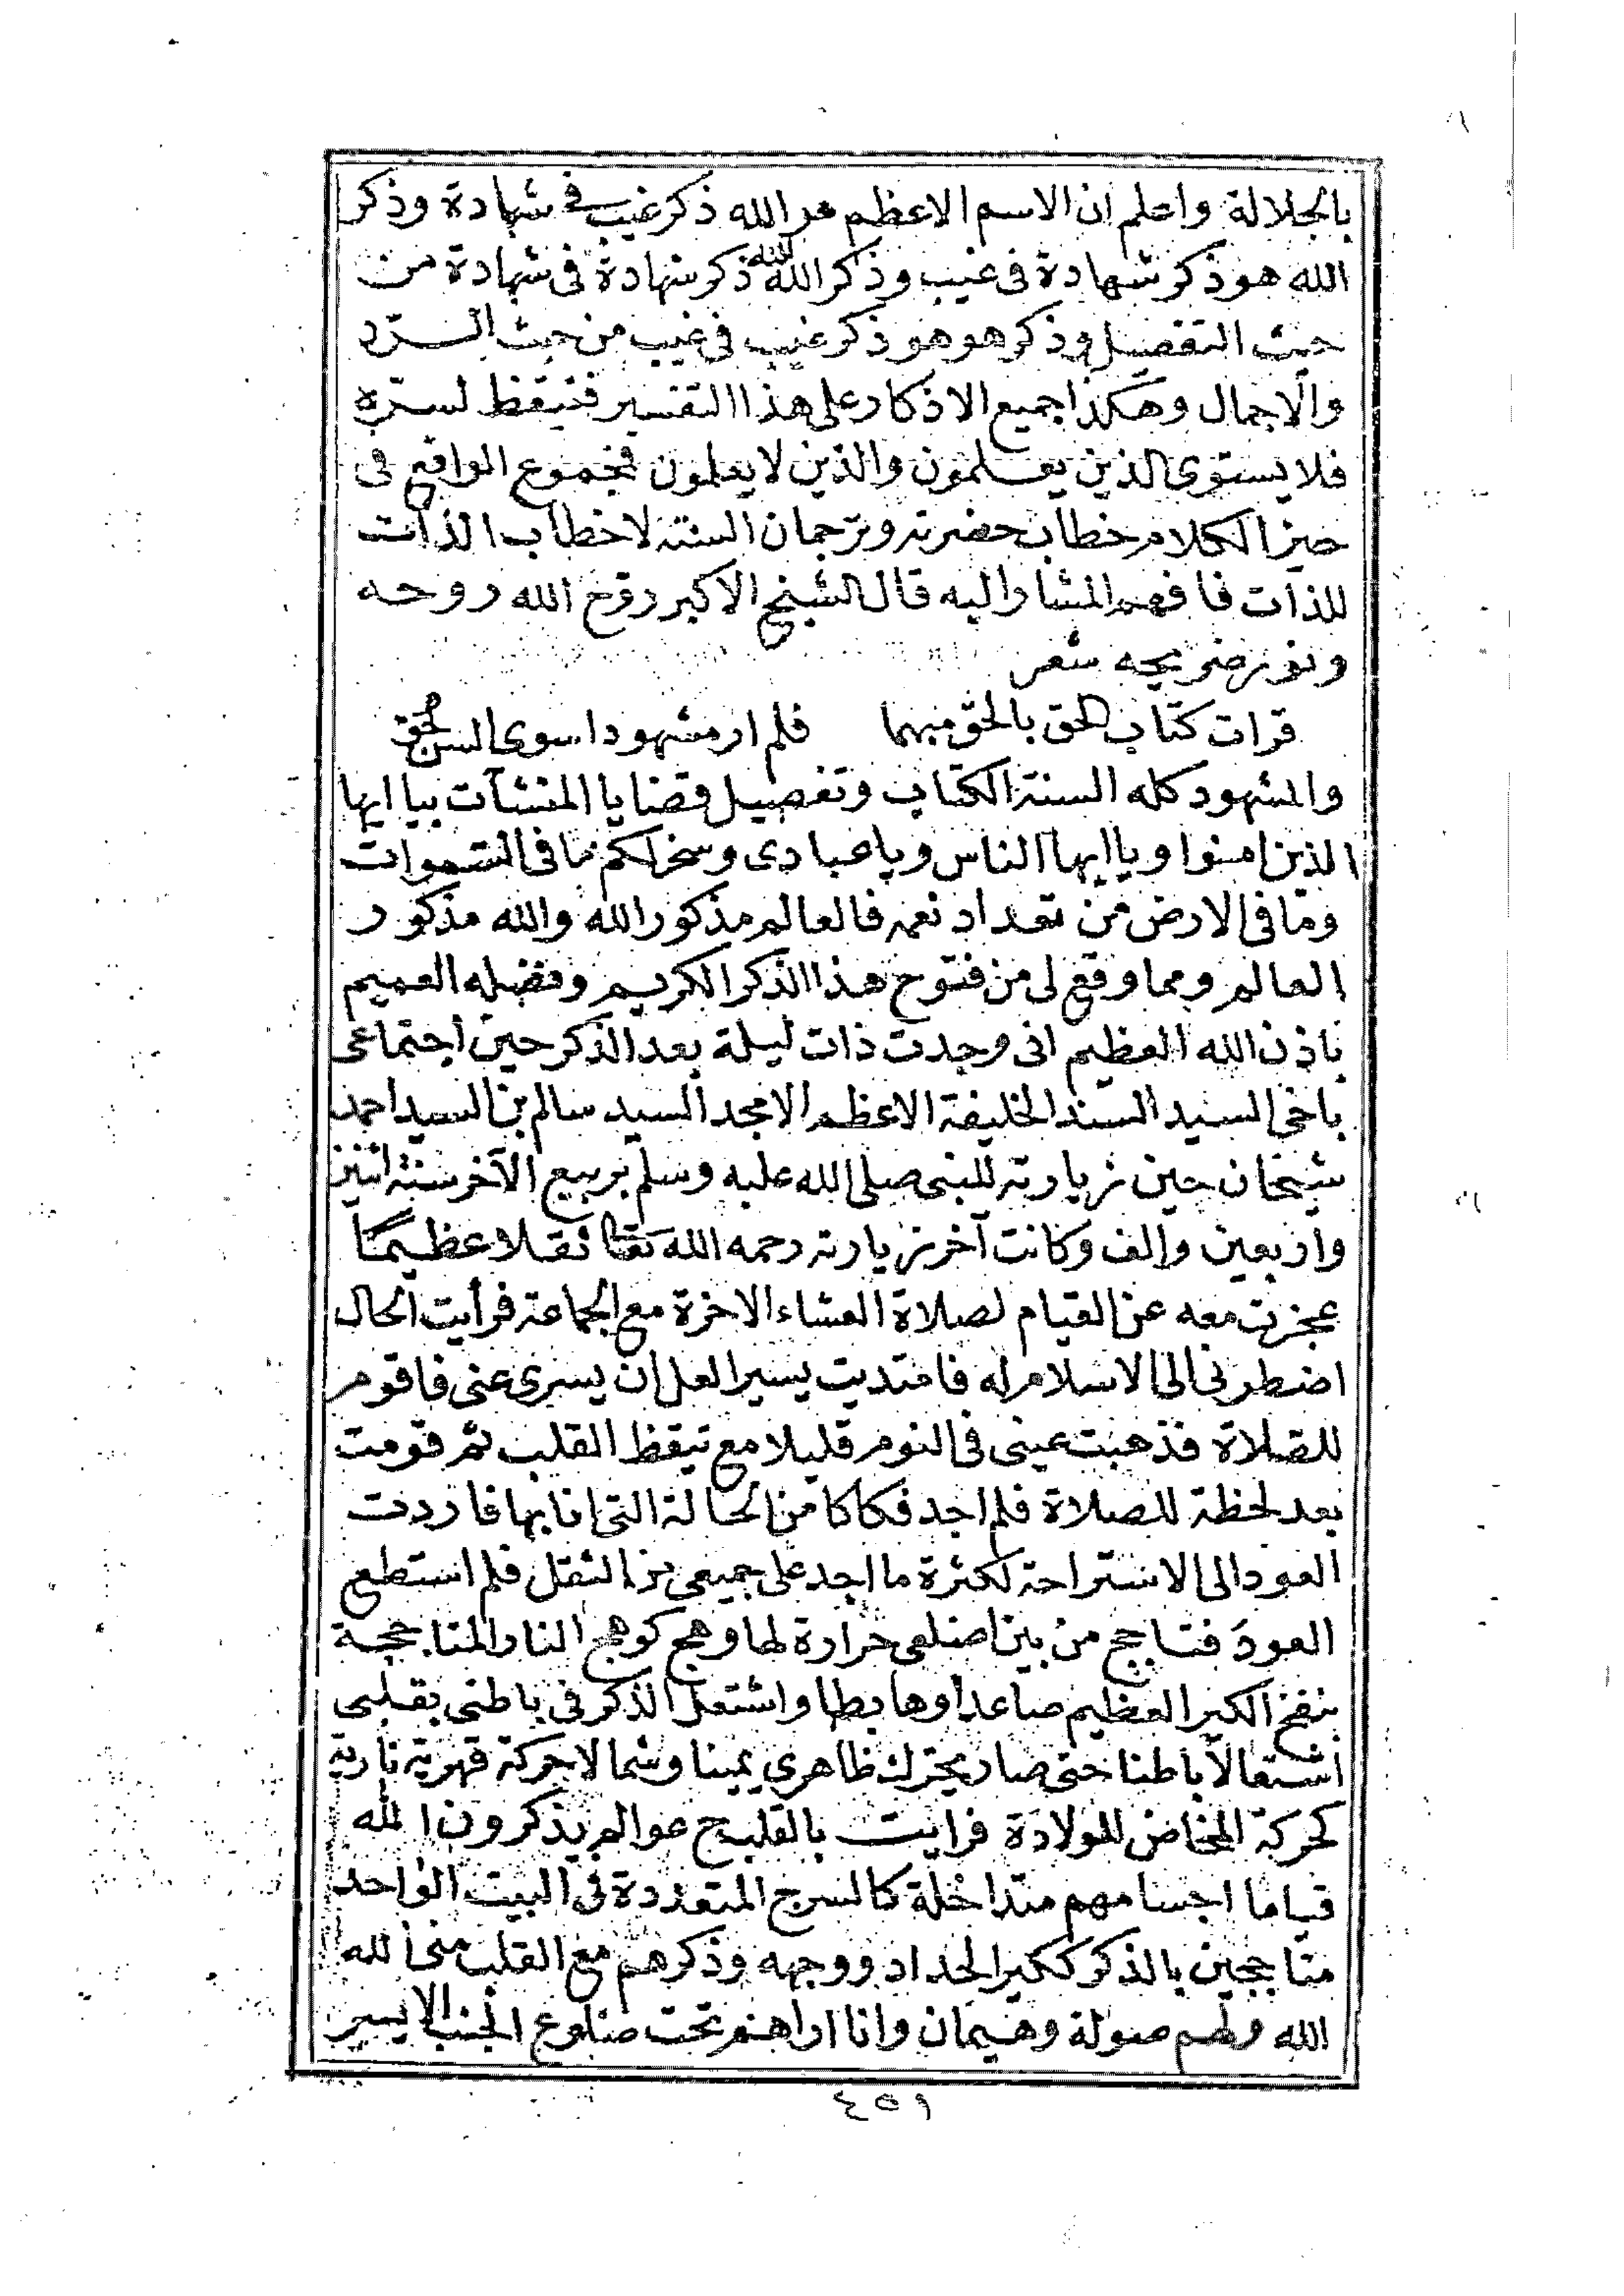 بالجلالة واعلم ان الاسم الاعظم هو الله ذكر غيب في شهادة وذكر
الله هو ذكر شهادة في غيب وذكر الله الله ذكر شهادة في شهادة من
حيث التفصيل وذكر هو هو ذكر غيب في غيب من حيث السرد
والاجمال وهكذا جميع الاذكار على هذا التفسير فتيقظ لسره
فلا يستوى الذين يعلمون والذين لا يعلمون فجموع الواقع في
حيز الكلام خطاب حضرته وترجمان السنته لا خطاب الذات
للذات فافهم المشار اليه قال الشيخ الاكبر روح الله روحه
ونور ضريحه شعر
قرات كتاب الحق بالحق مبهما فلم ار مشهودا سوى السن الحق
والمشهود كله السنة الكتاب وتفصيل قضايا المنشآت بيا ايها
الذين امنوا ويا ايها الناس ويا عبادى وسخر لكم ما في السموات
وما في الارض من تعداد نعمه فالعالم مذكور الله والله مذكور
العالم ومما وقع لى من فتوح هذا الذكر الكريم وفضله العميم
باذن الله العظيم انى وجدت ذات ليلة بعد الذكر حين اجتماعى
باخى السيد السند الخليفة الاعظم الامجد السيد سالم بن السيد احمد
شيخان حين زيارته للنبى صلى الله عليه وسلم بربيع الآخر سنة اثنين
واربعين والف وكانت آخر زيارته رحمه الله تعالى ثقلا عظيمًا
عجزت معه عن القيام لصلاة العشاء الاخرة مع الجماعة فرأيت الحال
اضطرنى الى الاسلام له فامتديت يسيرا لعل ان يسرى عنى فاقوم
للصلاة فذهبت عينى في النوم قليلا مع تيقظ القلب ثم قومت
بعد لحظة للصلاة فلم اجد فكاكا من الحالة التى انا بها فاردت
العود الى الاستراحة لكثرة ما اجد على جميعى من الثقل فلم استطع
العود فتاجج من بين اضلعى حرارة لها وهج كوهج النار المتاججة
بنفخ الكير العظيم صاعدا وهابطا واشتعل الذكر في باطنى بقلبى
اشتعالا باطنا حتى صار يحترك ظاهرى يمينا وشمالا حركة قهرية نارية
كحركة المخاض للولادة فرايت بالقلب ح عوالم يذكرون الله
قياما اجسامهم متداخلة كالسرج المتعددة في البيت الواحد
متاججين بالذكر ككير الحداد ووجهه وذكرهم مع القلب منى الله
الله ولهم صولة وهيمان وانا اراهم تحت ضلوع الجنب الايسر
٤٥١